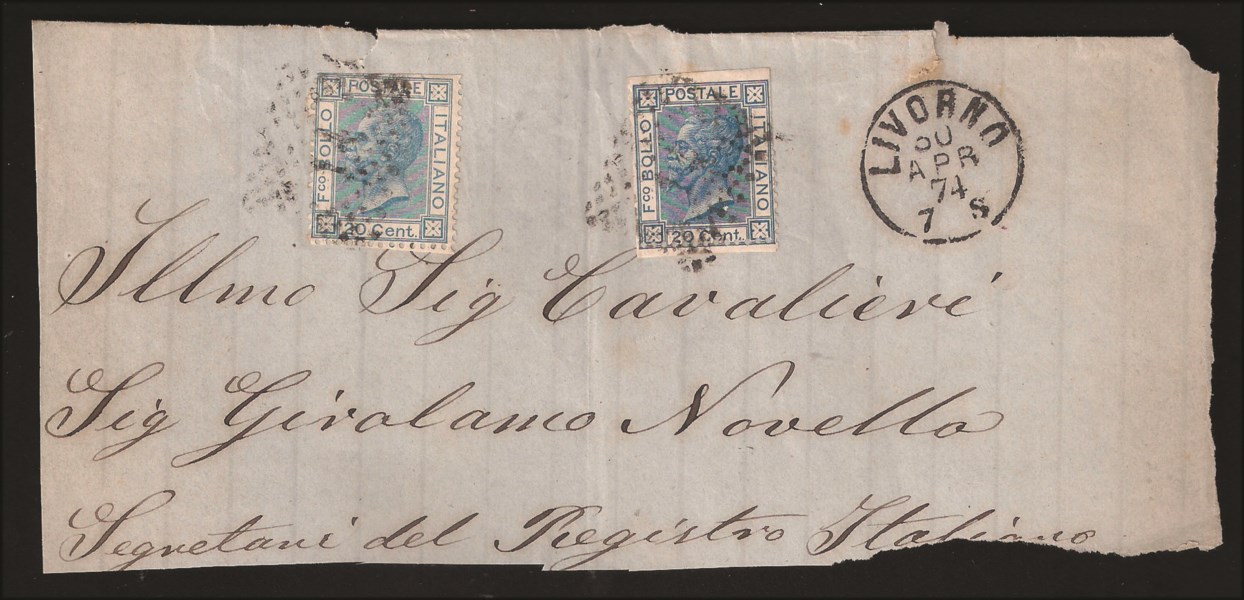 POSTALE
Fco BOLLO
ITALIANO
20 Cent.
POSTALE
Fco BOLLO
ITALIANO
20 Cent.
LIVORNO
30
APR
74
7 S
Illmo Sig Cavalieri
Sig Girolamo Novello
Segretari del Registro Italiano